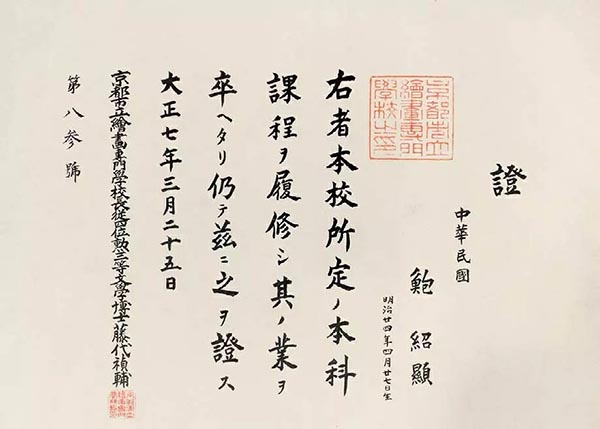 證
中華民國
鮑紹顯
明治廿四年四月廿七日生
京都市立
繪畫專門
學校之印
右者本校所定ノ本科
課程ヲ履修シ其ノ業ヲ
卒ヘタリ仍テ茲ニ之ヲ證ス
大正七年三月二十五日
京都市立繪畫專門學校長從四位勲三等文學博士藤代禎輔
第八參號